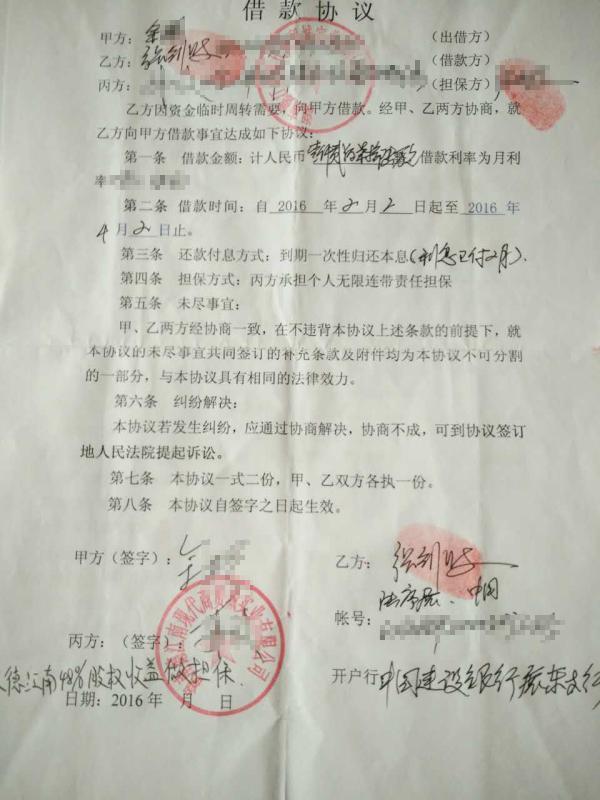 借款协议
甲方：　　（出借方）
乙方：张剑　　（借款方）
丙方：　　（担保方）
乙方因资金临时周转需要，向甲方借款。经甲、乙两方协商，就
乙方向甲方借款事宜达成如下协议：
第一条　借款金额：计人民币　　借款利率为月利
率
第二条　借款时间：自 2016 年 2 月 2 日起至 2016 年
4 月 2 日止。
第三条　还款付息方式：到期一次性归还本息（利息已付2月）．
第四条　担保方式：丙方承担个人无限连带责任担保
第五条　未尽事宜：
甲、乙两方经协商一致，在不违背本协议上述条款的前提下，就
本协议的未尽事宜共同签订的补充条款及附件均为本协议不可分割
的一部分，与本协议具有相同的法律效力。
第六条　纠纷解决：
本协议若发生纠纷，应通过协商解决，协商不成，可到协议签订
地人民法院提起诉讼。
第七条　本协议一式二份，甲、乙双方各执一份。
第八条　本协议自签字之日起生效。
甲方（签字）：
乙方：张剑
帐号：
丙方：（签字）：
江南现代商　　实业有限公司
德江南48%股权收益做担保
开户行中国建设银行振东支行
日期：2016 年　月　日